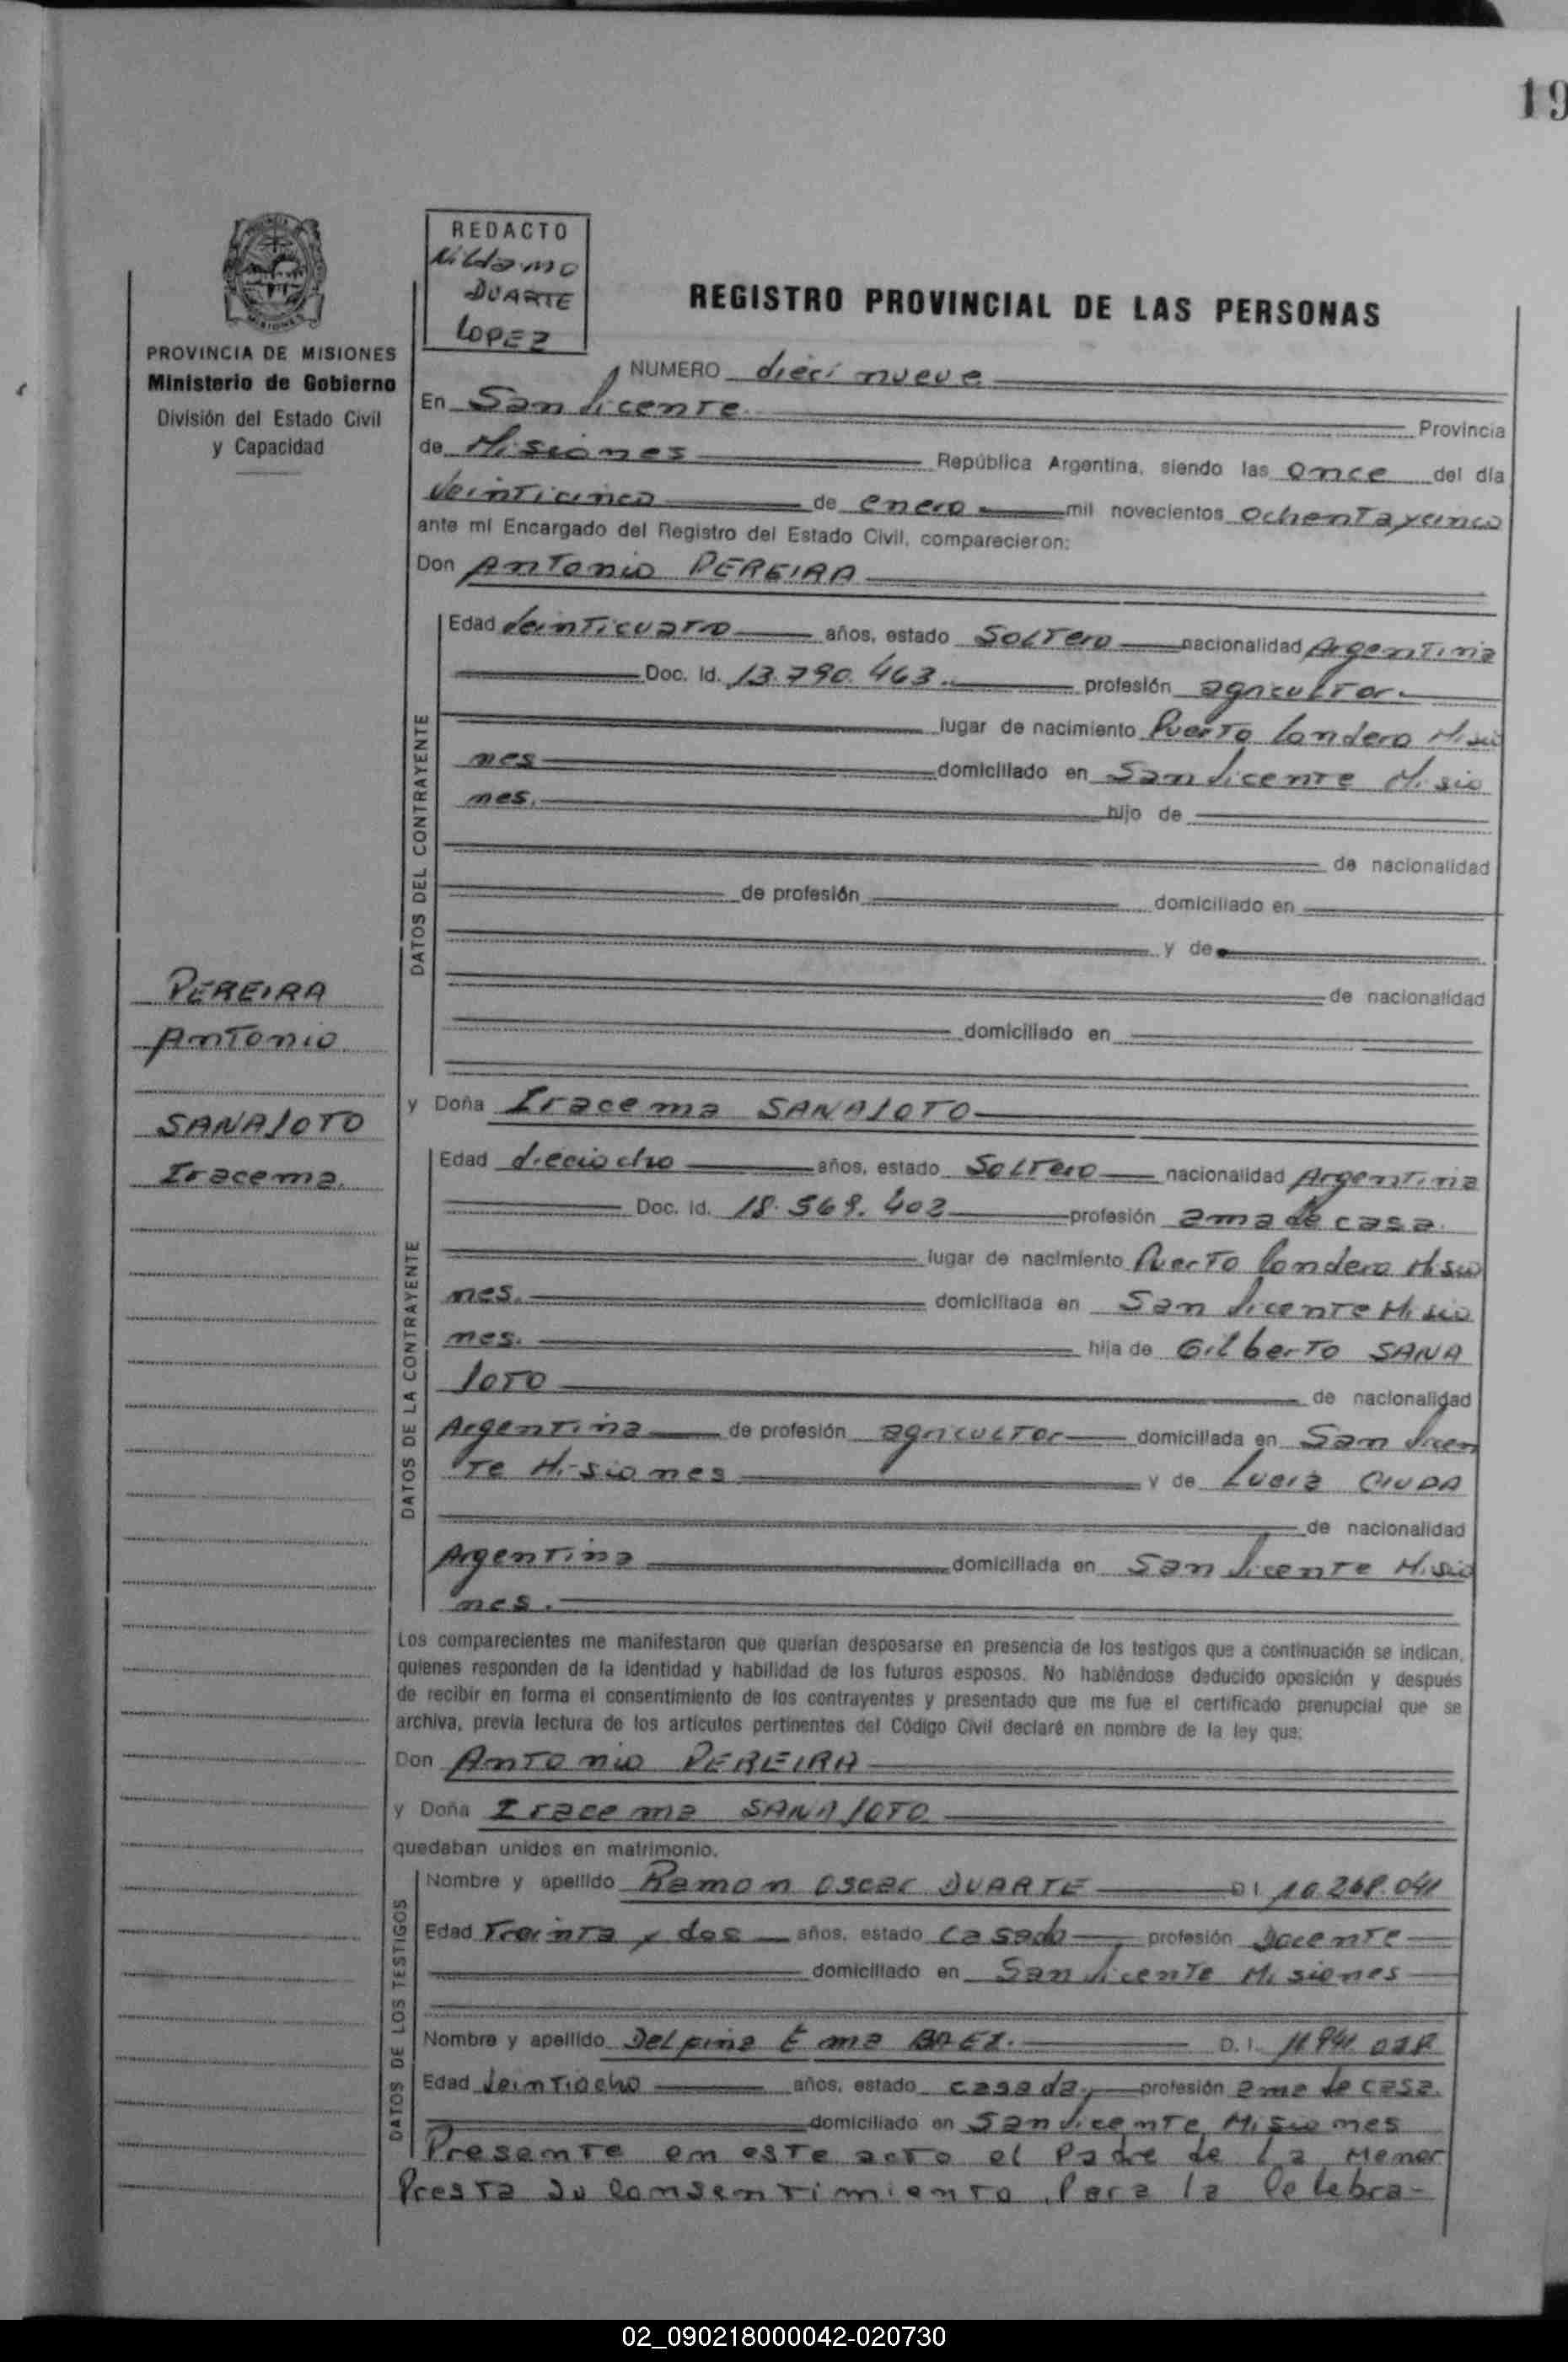 19
REDACTO
Nildamo
DUARTE
LOPEZ
REGISTRO PROVINCIAL DE LAS PERSONAS
PROVINCIA DE MISIONES
Ministerio de Gobierno
División del Estado Civil
y Capacidad
NUMERO dieci nueve
En San Vicente Provincia
de Misiones República Argentina, siendo las once del día
Veinticinco de enero mil novecientos ochenta y cinco
ante mí Encargado del Registro del Estado Civil, comparecieron:
Don Antonio PEREIRA
DATOS DEL CONTRAYENTE
Edad Veinticuatro años, estado Soltero nacionalidad Argentina
Doc. Id. 13.790.463. profesión agricultor.
lugar de nacimiento Puerto Londero Misio
nes domiciliado en San Vicente Misio
nes. hijo de
de nacionalidad
de profesión domiciliado en
y de
de nacionalidad
domiciliado en
PEREIRA
Antonio
SANAIOTO
Iracema.
y Doña Iracema SANAIOTO
DATOS DE LA CONTRAYENTE
Edad dieciocho años, estado Soltero nacionalidad Argentina
Doc. Id. 18.569.402 profesión ama de casa.
lugar de nacimiento Puerto Londero Misio
nes. domiciliada en San Vicente Misio
nes. hija de Gilberto SANA
IOTO de nacionalidad
Argentina de profesión agricultor domiciliada en San Vicen
te Misiones y de Lucia
de nacionalidad
Argentina domiciliada en San Vicente Misio
nes.
Los comparecientes me manifestaron que querían desposarse en presencia de los testigos que a continuación se indican,
quienes responden de la identidad y habilidad de los futuros esposos. No habiéndose deducido oposición y después
de recibir en forma el consentimiento de los contrayentes y presentado que me fue el certificado prenupcial que se
archiva, previa lectura de los artículos pertinentes del Código Civil declaré en nombre de la ley que:
Don Antonio PEREIRA
y Doña Iracema SANAIOTO
quedaban unidos en matrimonio.
DATOS DE LOS TESTIGOS
Nombre y apellido Ramon Oscar DUARTE D.I. 10.268.041
Edad Treinta y dos años, estado Casado profesión Docente
domiciliado en San Vicente Misiones
Nombre y apellido Delfina Ema BAEZ. D.I.
Edad Veintiocho años, estado casada, profesión ama de casa.
domiciliado en San Vicente, Misiones
Presente en este acto el Padre de la Menor
Presta su Consentimiento Para la Celebra-
02_090218000042-020730